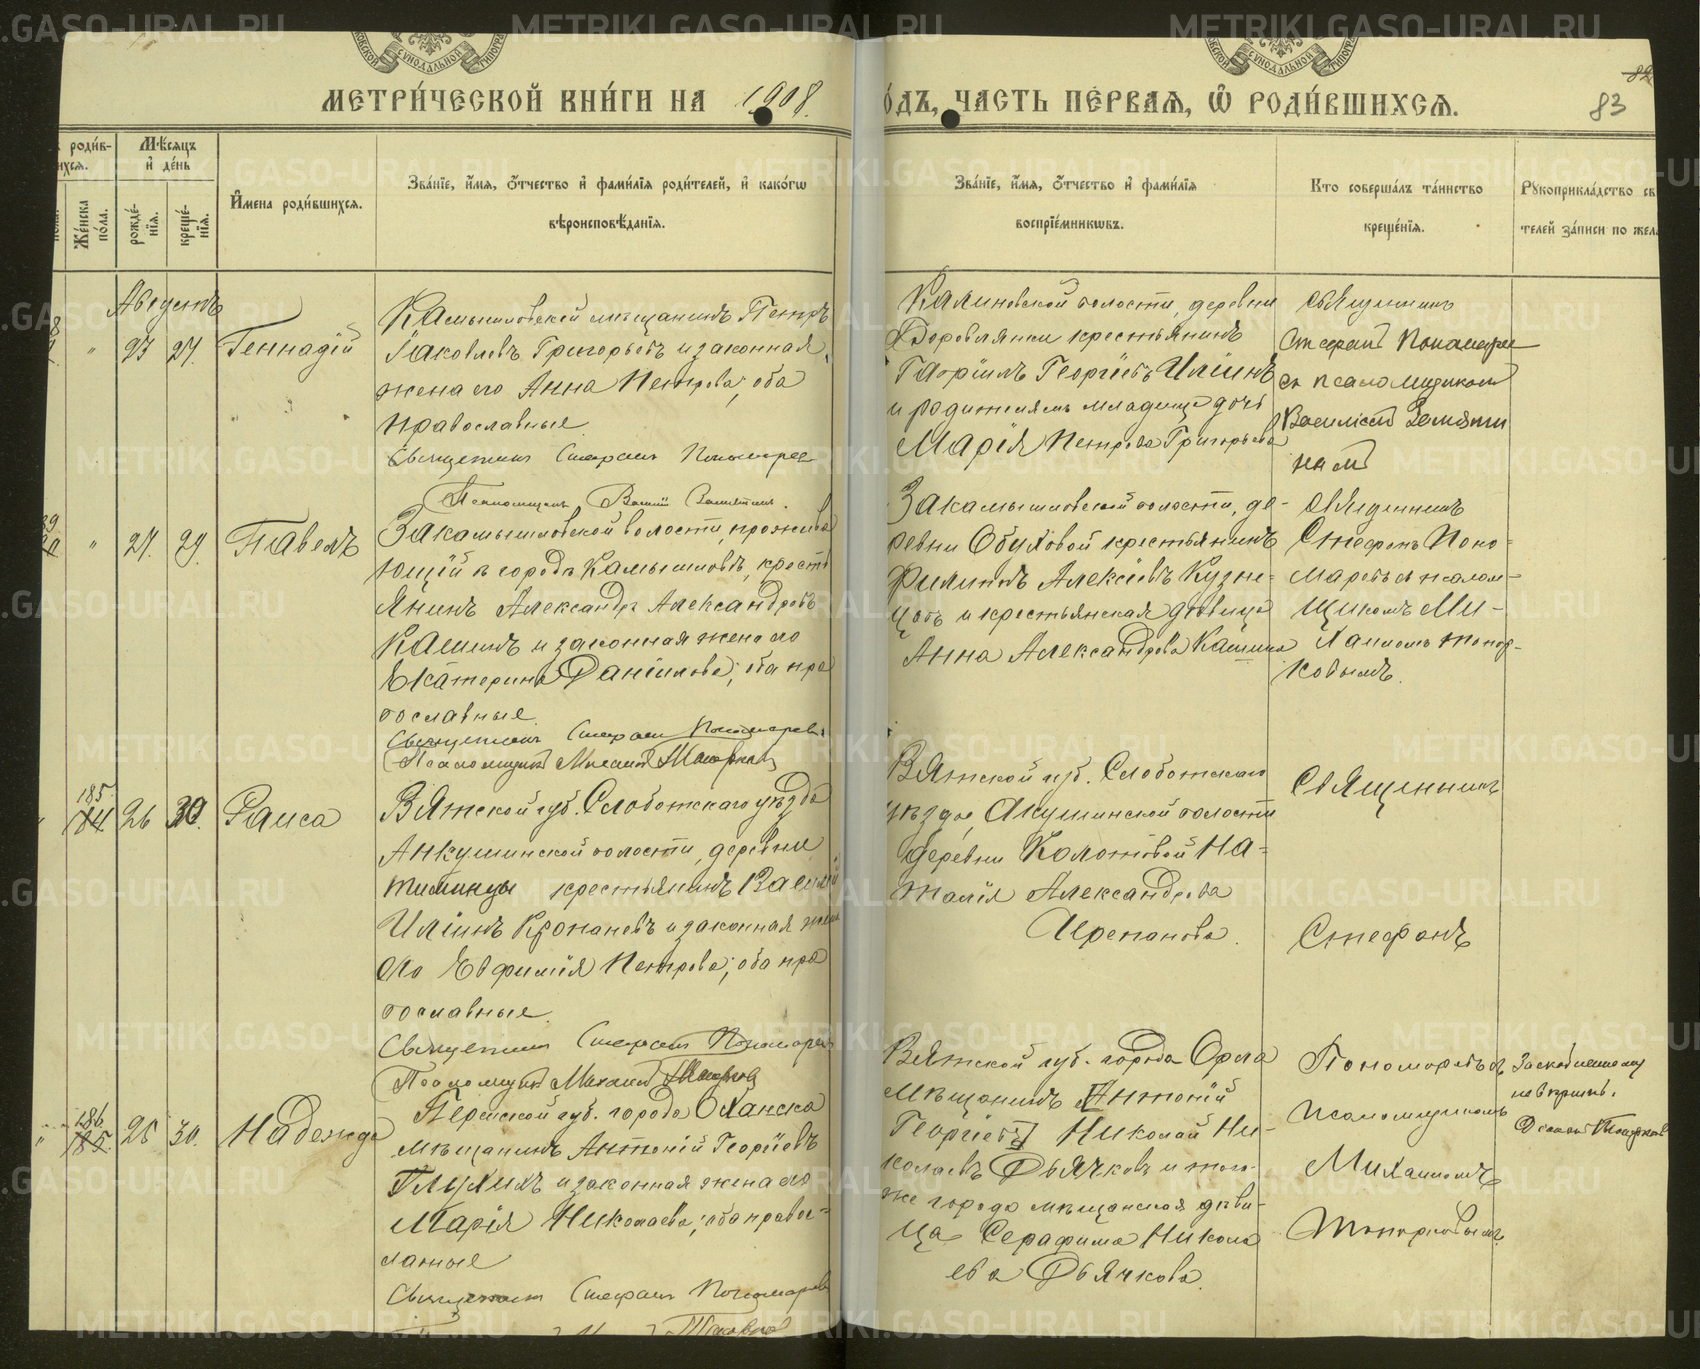 МЕТРИ́ЧЕСКОЙ КНИ́ГИ НА 1908.
О́ДЪ, ЧАСТЬ ПЕ́РВАЯ, Ѿ РОДИ́ВШИХСЯ.
82
83
роди́в-
ихся.
Мѣ́сяцъ
и҆ де́нь
Же́нска
по́ла.
рожде́-
нїя.
креще́-
нїя.
И҆мена роди́вшихся.
Зва́нїе, и҆́мя, ѻ҆́тчество и҆ фами́лїя роди́телей, и҆ како́гѡ
вѣроисповѣ́данїя.
Зва́нїе, и҆́мя, ѻ҆́тчество и҆ фами́лїя
воспрїе́мникѡвъ.
Кто соверша́лъ та́инство
креще́нїя.
Рꙋкоприкла́дство св
телей за́писи по жел
Августъ
" 23 27. Геннадій
Камышловскій мѣщанинъ Петръ
Іаковлевъ Григорьевъ и законная
жена его Анна Петрова; оба
православные.
Священникъ Стефанъ Пономарев
Псаломщикъ Замятин.
Калиновской волости, деревни
крестьянинъ
Гавріилъ Георгіевъ Ильинъ
и родителемъ младенца дочь
Марія Петрова Григорьева
Священникъ
Стефанъ Пономарев
съ псаломщикомъ
Василіемъ Замяти
нымъ
" 27. 29. Павелъ
Закамышловской волости, прожива
ющій в городѣ Камышловѣ, кресть
янинъ Александръ Александровъ
Кашинъ и законная жена его
Екатерина Даніилова; оба пра
вославные.
Священникъ Стефанъ Пономарев.
Псаломщикъ Михаилъ Топорков
Закамышловской волости, де-
ревни Обуховой крестьянинъ
Филиппъ Алексіевъ Кузне-
цовъ и крестьянская дѣвица
Анна Александрова Кашина
Священникъ
Стефанъ Поно-
маревъ съ псалом-
щикомъ Ми-
хаиломъ Топор-
ковымъ.
185.
184 26 30. Раиса
Вятской губ. Слободскаго уѣзда
Анкушинской волости, деревни
Тиминцы крестьянинъ Василій
Ильинъ и законная жена
его Евфимія Петрова; оба пра
вославные.
Священникъ Стефанъ Пономарев
Псаломщикъ Михаилъ Топорков
Вятской губ. Слободскаго
уѣзда, Акушинской волости
деревни Колотовой На-
талія Александрова
Черепанова.
Священникъ
Стефанъ
186.
" 185. 25 30. Надежда
Пермской губ. города Оханска
мѣщанинъ Антоній Георгіевъ
Глухихъ и законная жена его
Марія Николаева; оба правос-
лавные
Священникъ Стефанъ Пономаревъ
Вятской губ. города Орла
мѣщанинъ [Антоній
Георгіевъ] Николай Ни-
колаевъ Дьячковъ и того-
же города мѣщанская дѣви-
ца Серафима Никола
ева Дьячкова.
Пономаревъ съ
псаломщикомъ
Михаиломъ
Топорковымъ.
Заскобленному
не вѣрить.